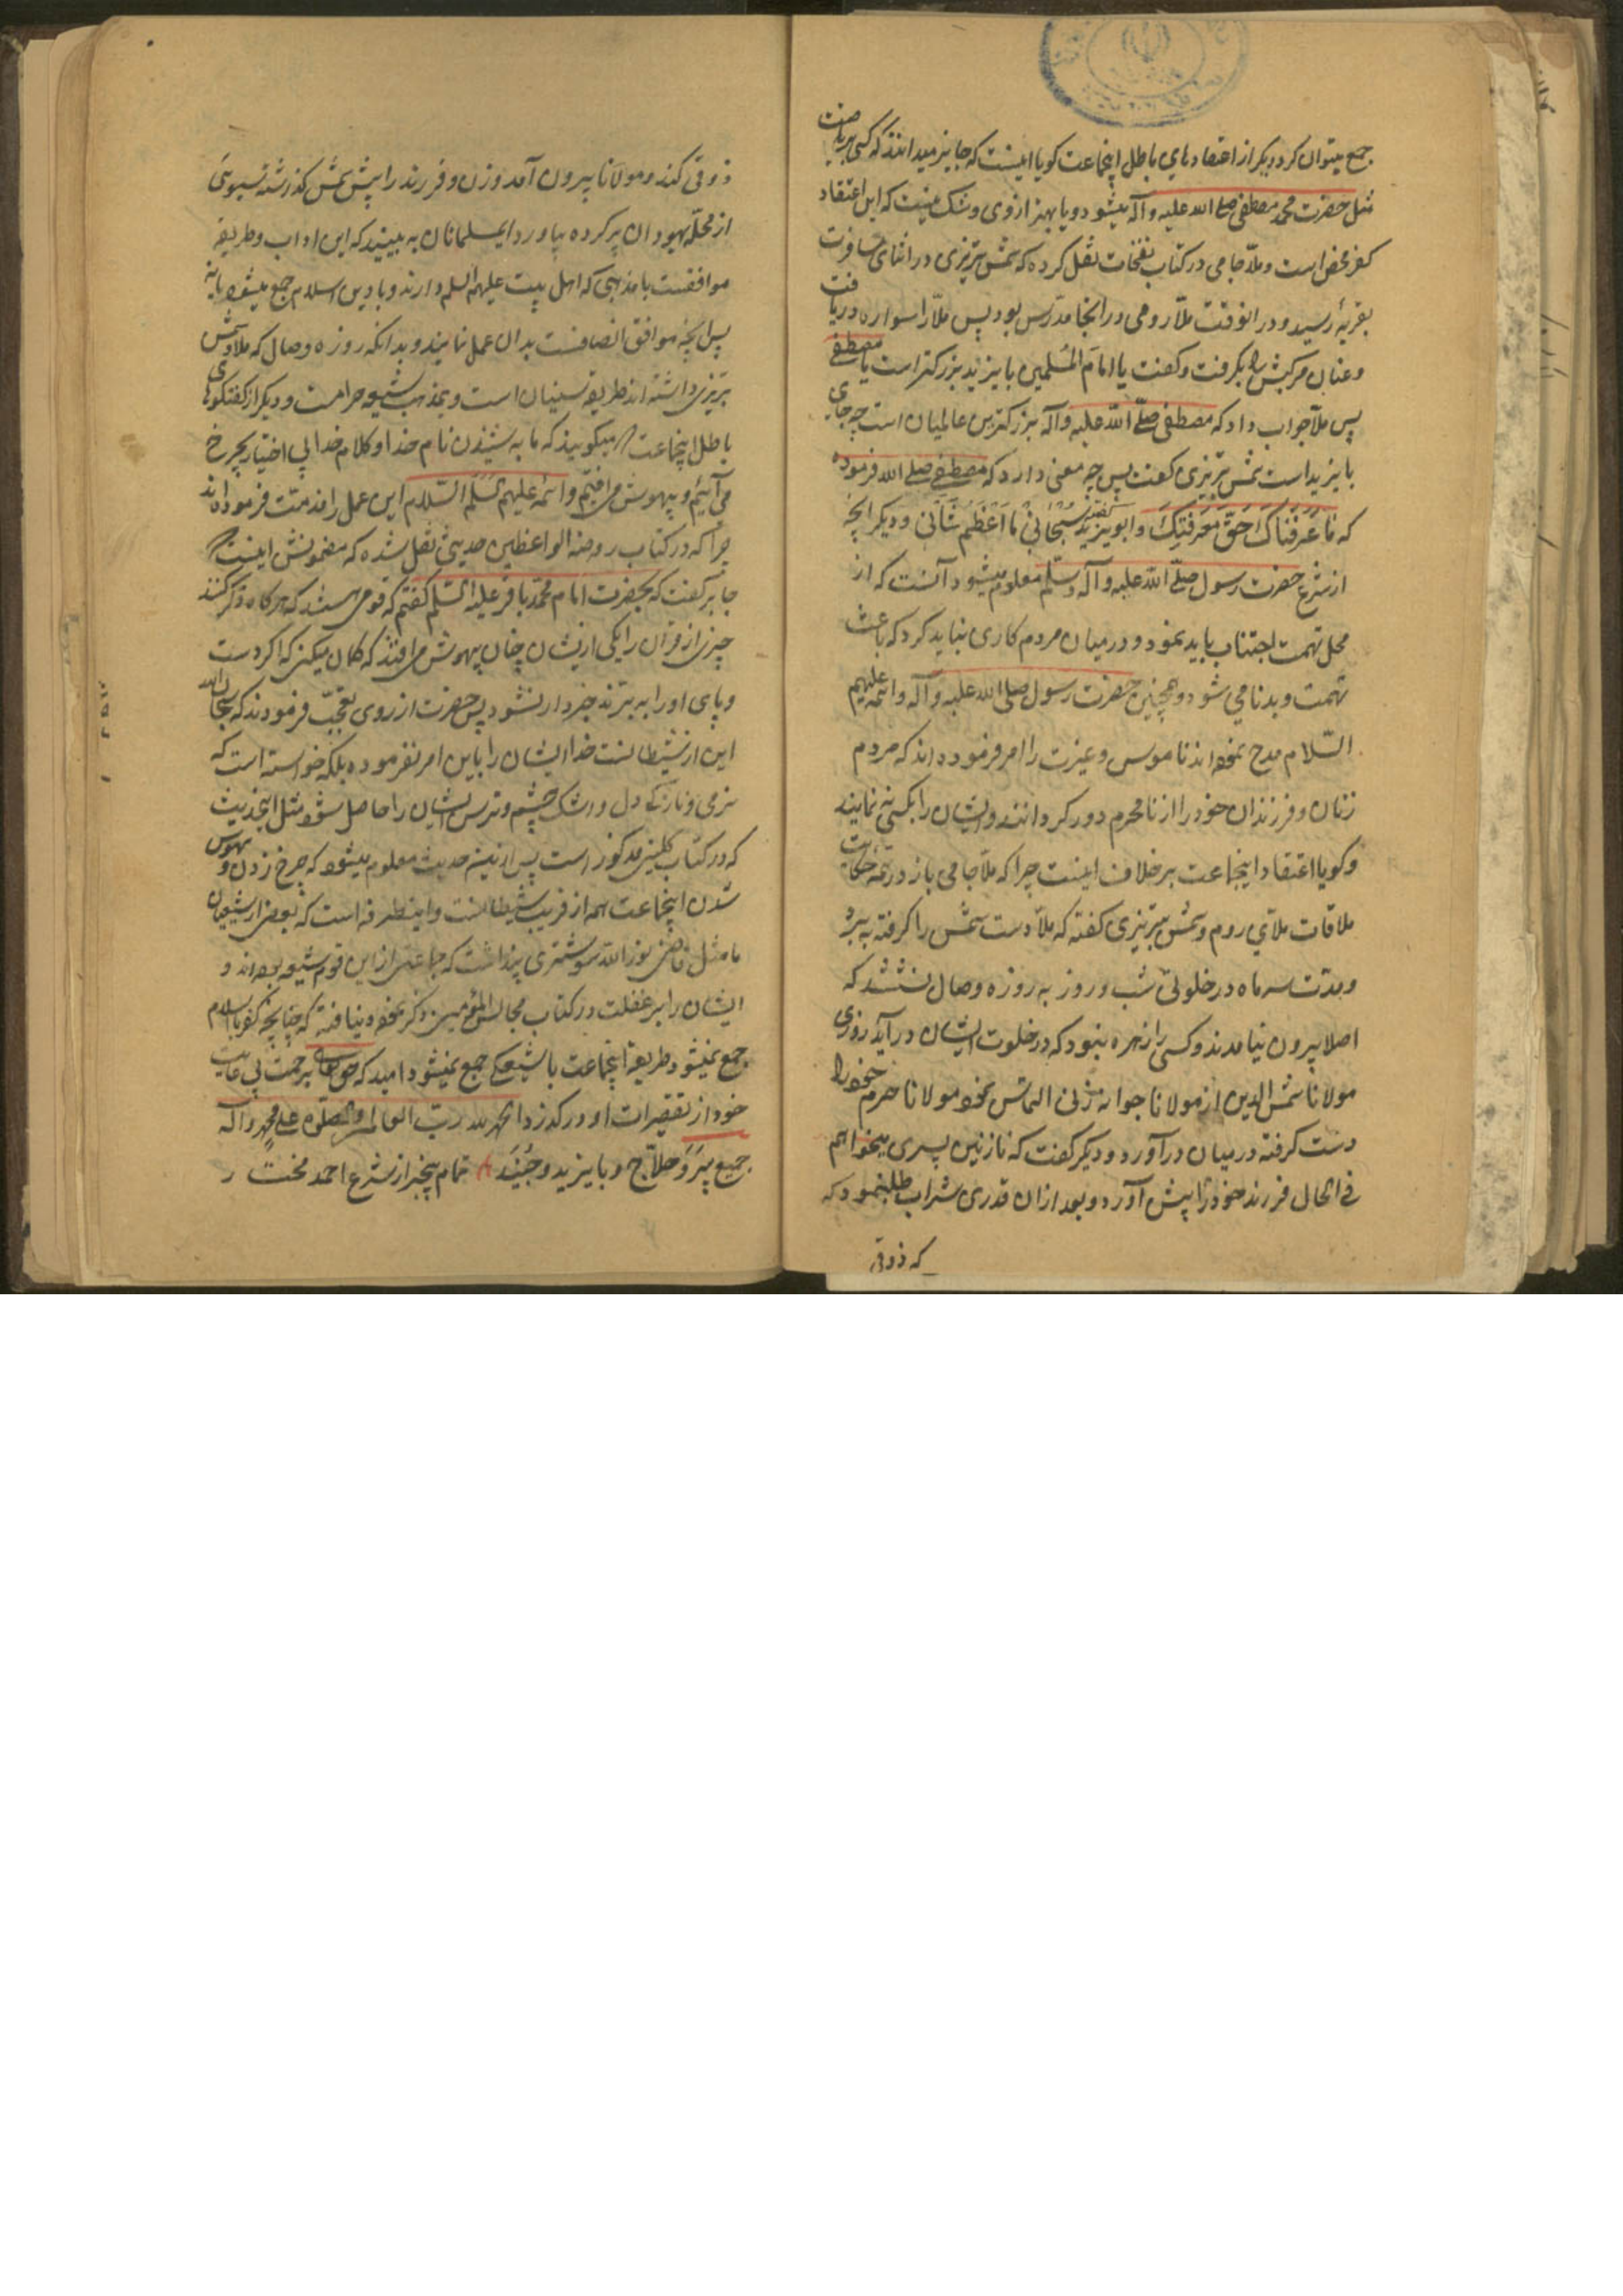 جمع میتوان کرد و دیکر از اعتقادهای باطل اینجماعت کویا اینست که جایز میدانند که کسی بریاضت
مثل حضرت محمد مصطفی صلی الله علیه وآله میشود و یا بهتر ازوی و شک نیست که این اعتقاد
کفر محض است و ملّا جامی در کتاب نفحات نقل کرده که شمس تبریزی در اثنای مسافرت
بقریهٔ رسید و در انوقت ملّا رومی در انجا مدرّس بود پس ملّا را سواره دریافت
و عنان مرکبش را بکرفت و کفت یا امام المُسلمین بایزید بزرکتر است یا مصطفی
پس ملّا جواب داد که مصطفی صلّی اللّه علیه وآله بزرکترین عالمیان است چه جای
بایزید است شمس تبریزی کفت پس چه معنی دارد که مصطفی صلی الله فرموده
که مَا عَرَفنَاکَ حَقَّ مَعرَفتِکَ و ابویزید کفته سُبحَانی مَا اَعظَم شَأنی و دیکر انچه
از شرع حضرت رسول صلّی اللّه علیه وآله وسلّم معلوم میشود آنست که از
محل تهمت اجتناب باید نمود و در میان مردم کاری نباید کرد که باعث
تهمت و بدنامی شود و همچنین حضرت رسول صلی الله علیه وآله وائمّه علیهم
السّلام مدح نموده اند ناموس و غیرت را و امر فرموده اند که مردم
زنان و فرزندان خود را از نامحرم دور کردانند و ایشان را بکسی ننمایند
و کویا اعتقاد اینجماعت برخلاف اینست چرا که ملّا جامی باز در تتمّه حکایت
ملاقات ملّای روم و شمس تبریزی کفته که ملّا دست شمس را کرفته ببرد
و مدت سه ماه در خلوتی شب و روز به روزه وصال نشستند که
اصلا بیرون نیامدند و کسی را زهره نبود که در خلوت ایشان درآید روزی
مولانا شمس الدین از مولانا جوانه زنی التماس نمود مولانا حرم خود را
دست کرفته در میان درآورد و دیکر کفت که نازنین پسری میخواهم
فی الحال فرزند خود را پیش آورد و بعد از ان قدری شراب طلب نمود که
که ذوقی
ذوقی کند و مولانا بیرون آمد و زن و فرزند را پیش شمس کذرشته سبوئی
از محلّه یهودان پر کرده بیاورد ایمسلمانان به بینید که این اداب و طریقه
موافقست با مذهبی که اهل بیت علیهم السلم دارند و با دین اسلام جمع میشود یا نه
پس انچه موافق انصافست بدان عمل نمایند و بدانکه روزه وصال که ملا و شمس
تبریزی داشته اند طریقه سنیان است و بمذهب شیعه حرامست و دیکر از کفتکوهای
باطل اینجماعت میکویند که ما به شنیدن نام خدا و کلام خدا بی اختیار بچرخ
می آئیم و بیهوش می افتیم و ائمّه علیهم السّلام این عمل را مذمّت فرموده اند
چرا که در کتاب روضه الواعظین حدیثی نقل شده که مضمونش اینست
جابر کفت که بحضرت امام محمّد باقر علیه السّلم کفتم که قومی هستند که هرکاه ذکر کنند
چیزی از قران را یکی از ایشان چنان بیهوش می افتد که کمان میکنی که اکر دست
و پای او را به برّند خبردار نشود پس حضرت از روی تعجّب فرمودند که سبحان الله
این از شیطانست خدا ایشان را باین امر نفرموده بلکه خواسته است که
نرمی و نازکی دل و اشک چشم و ترس ایشان را حاصل شود مثل اینحدیث
که در کتاب کلینی مذکور است پس ازینه حدیث معلوم میشود که چرخ زدن و بیهوش
شدن اینجماعت همه از فریب شیطانست و اینطرفه است که بعضی از شیعیان
ما مثل قاضی نور الله شوشتری پنداشت که جماعتی از این قوم شیعه بوده اند و
ایشان را بر غفلت در کتاب مجالس المؤمنین ذکر نموده و نیافته که چنانچه کفر با اسلام
جمع نمیشود طریقه اینجماعت با شیعکی جمع نمیشود امید که برحمت بی غایت
خود از تقصیرات او درکذرد الحمد لله ربّ العالمین والصلوة علی محمد وآله
جمیع پیرو حلّاج و بایزید و جُنَید تمام بیخبر از شرع احمد مختار